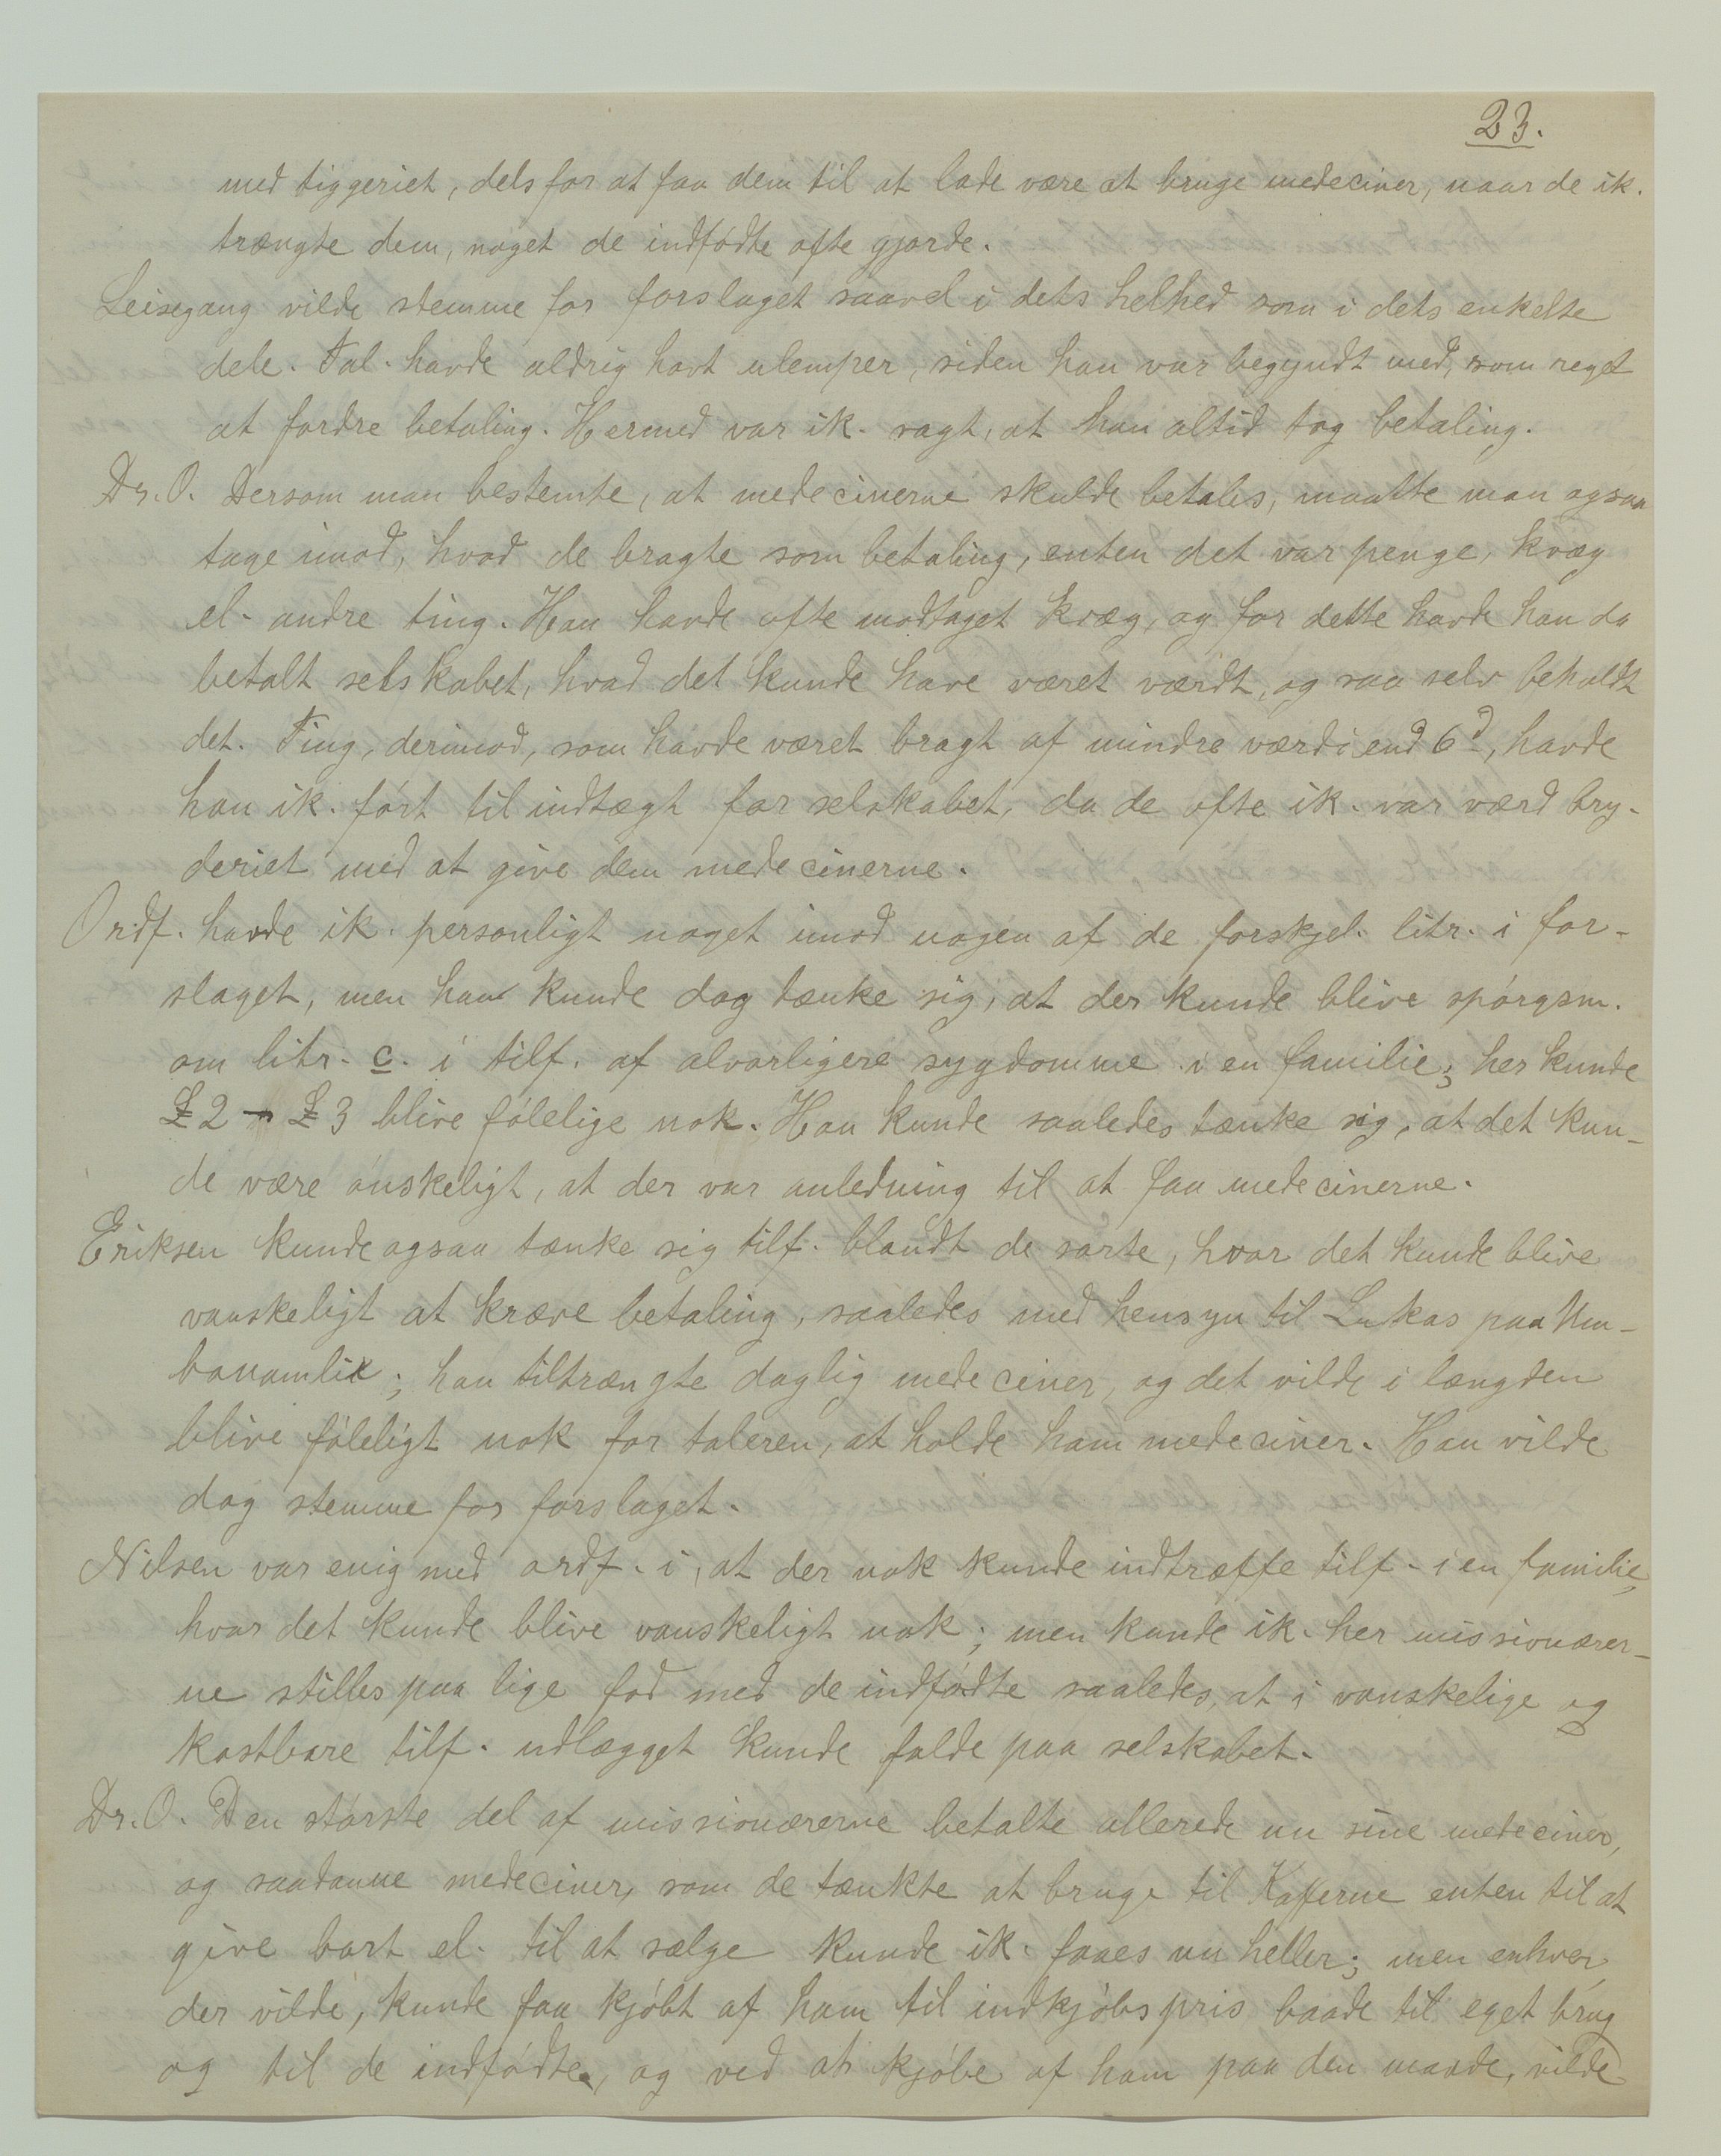 23.
med tiggeriet, dels for at faa dem til at lade være at bruge medeciner, naar de ik.
trængte dem, noget de indfødte ofte gjorde.
Leisegang vilde stemme for forslaget saavel i dets helhed som i dets enkelte
dele. Tal. havde aldrig havt ulemper, siden han var begyndt med, som regel
at fordre betaling. Hermed var ik. sagt, at han altid tog betaling.
Dr. O. Dersom man bestemte, at medecinerne skulde betales, maatte man ogsaa
tage imod, hvad de bragte som betaling, enten det var penge, kvæg
el. andre ting. Han havde ofte modtaget kvæg, og for dette havde han da
betalt selskabet, hvad det kunde have været værdt, og saa selv beholdt
det. Ting, derimod, som havde været bragt af mindre værdi end 6d, havde
han ik. ført til indtægt for selskabet, da de ofte ik. var værd bry-
deriet med at give dem medecinerne.
Ordf. havde ik. personligt noget imod nogen af de forskjel. litr. i for-
slaget, men han kunde dog tænke sig, at der kunde blive spørgsm.
om litr. c. i tilf. af alvorligere sygdomme i en familie; her kunde
£ 2 - £ 3 blive følelige nok. Han kunde saaledes tænke sig, at det kun-
de være ønskeligt, at der var anledning til at faa medecinerne.
Eriksen kunde ogsaa tænke sig tilf. blandt de sorte, hvor det kunde blive
vanskeligt at kræve betaling, saaledes med hensyn til Lukas paa
han tiltrængte daglig medeciner, og det vilde i længden
blive føleligt nok for taleren, at holde ham medeciner. Han vilde
dog stemme for forslaget.
Nilsen var enig med ordf. i, at der nok kunde indtræffe tilf. i en familie,
hvor det kunde blive vanskeligt nok; men kunde ik. her missionærer-
ne stilles paa lige fod med de indfødte saaledes, at i vanskelige og
kostbare tilf. udlægget kunde falde paa selskabet.
Dr. O. Den største del af missionærerne betalte allerede nu sine medeciner,
og saadanne medeciner, som de tænkte at bruge til Kaferne enten til at
give bort el. til at sælge kunde ik. faaes nu heller; men enhver,
der vilde, kunde faa kjøbt af ham til indkjøbspris baade til eget brug
og til de indfødte, og ved at kjøbe af ham paa den maade, vilde